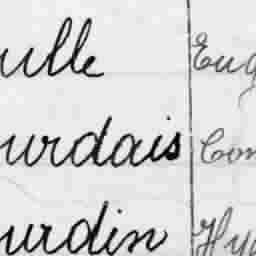 ulle Eug
urdais Con
urdin Hya